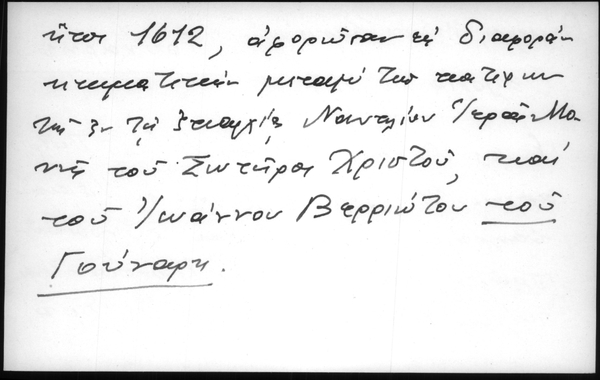 ἤτοι 1612, ἀφορῶσαν εἰς διαφοράν
κτηματικήν μεταξύ τῶν πατέρων
τῆς ἐν τῇ ἐπαρχίᾳ Ναυπλίου Ἱερᾶς Μο-
νῆς τοῦ Σωτῆρος Χριστοῦ, καί
τοῦ Ἰωάννου Βερριώτου τοῦ
Γούναρη.